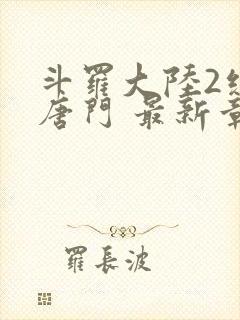 斗羅大陸2
唐門 最新
羅長波